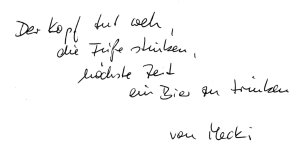 Der Kopf tut weh,
die Füße stinken,
höchste Zeit
ein Bier zu trinken
von Mecki